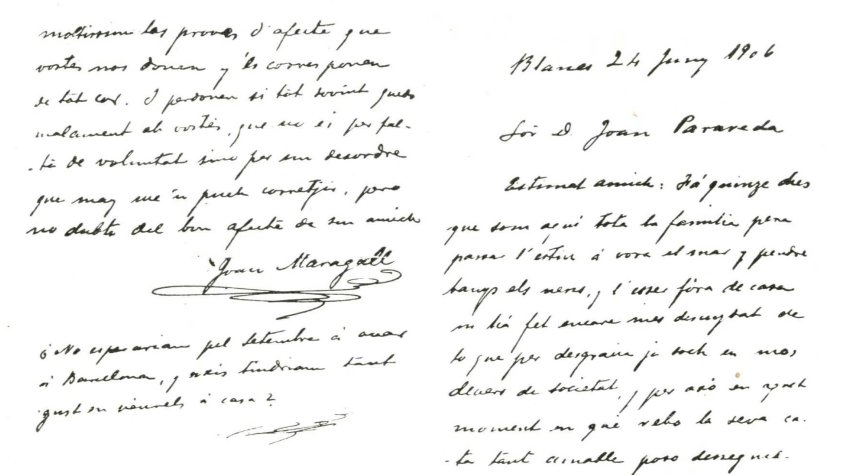 moltissim las provas d'afecte que
vostés nos donen y 'ls corresponen
de tot cor. I perdonen si tot sovint quedo
malament ab vostés, que no es per fal-
-ta de voluntat sino per un desordre
que may me 'n puch corretjir, pero
no dubti del bon afecte de son amich
Joan Maragall
¿No esperarian pel setembre á anar
á Barcelona, y tindriam tant
gust en veurels á casa?
Blanes 24 Juny 1906
Sór D. Joan Parareda
Estimat amich: Fá quinze dies
que som aquí tota la familia pera
passa l'estiu á vora el mar y pendre
banys els nens, y l'esser fóra de casa
m'há fet encare mes descuydat de
lo que per desgracia ja soch en mos
devers de societat, y per aixó en aquest
moment en qué rebo la seva ca-
-ta tant amable poso desseguit